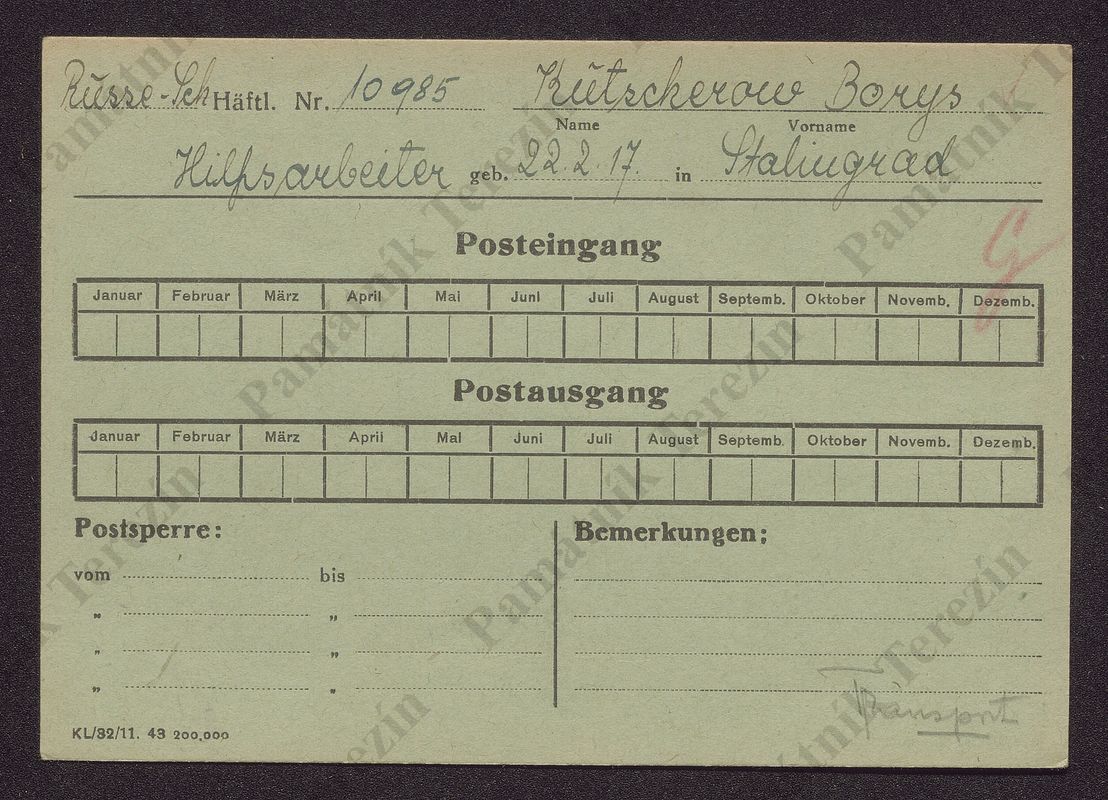 Russe-Sch Häftl. Nr. 10985 Kutscherow Borys
Name Vorname
Hilfsarbeiter geb. 22.2.17. in Stalingrad
G
Posteingang
Januar Februar März April Mai Juni Juli August Septemb. Oktober Novemb. Dezemb.
Postausgang
Januar Februar März April Mai Juni Juli August Septemb. Oktober Novemb. Dezemb.
Postsperre: Bemerkungen:
vom bis
„ „
„ „
„ „
Transport
KL/32/11. 43 200,000
Památník Terezín